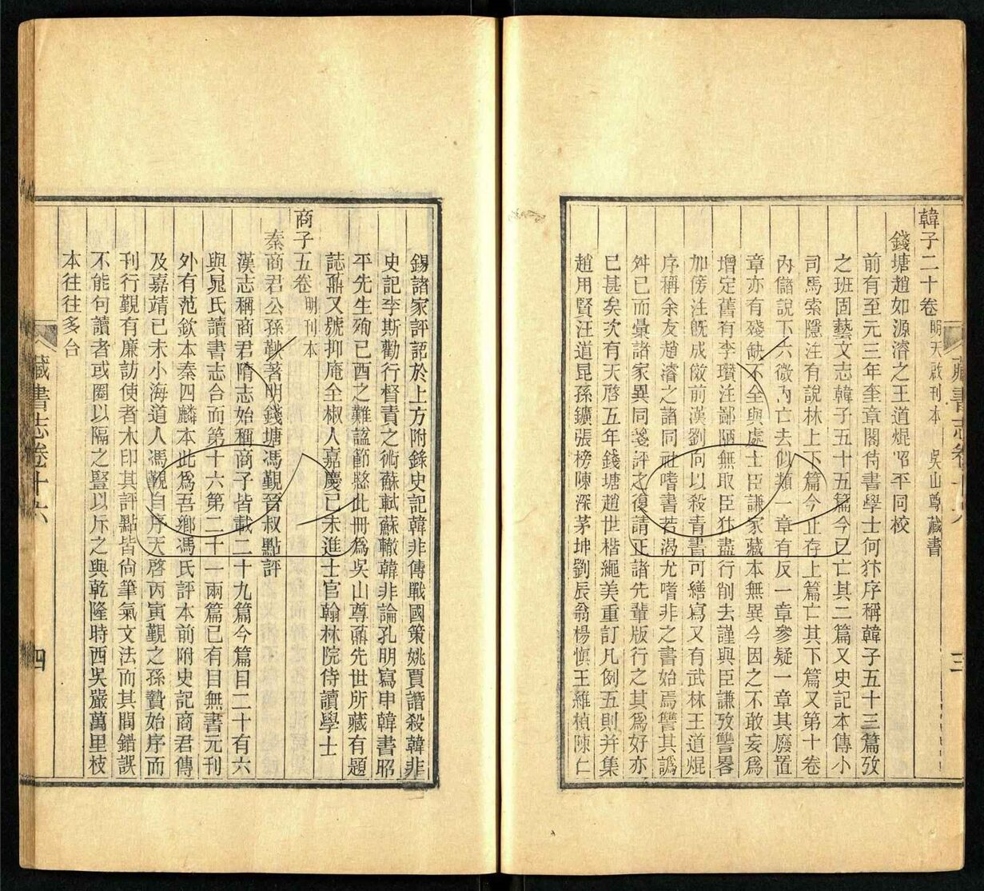 韓子二十卷 明天啟刊本 吳山尊藏書
錢塘趙如源濬之王道焜昭平同校
前有至元三年奎章閣侍書學士何犿序稱韓子五十三篇攷
之班固藝文志韓子五十五篇今已亡其二篇又史記本傳小
司馬索隱注有說林上下篇今止存上篇亡其下篇又第十卷
內儲說下六微內亡去似類一章有反一章參疑一章其廢置
章亦有殘缺不全與處士臣謙家藏本無異今因之不敢妄為
增定舊有李瓚注鄙陋無取臣犿盡行削去謹與臣謙攷讐畧
加傍注旣成倣前漢劉向以殺青書可繕寫又有武林王道焜
序稱余友趙濬之諸同社嗜書若渴尤嗜非之書始焉讐其譌
舛已而彙諸家異同箋評之復請正諸先輩版行之其爲好亦
已甚矣次有天啓五年錢塘趙世楷繩美重訂凡例五則并集
趙用賢汪道昆孫鑛張榜陳深茅坤劉辰翁楊愼王維楨陳仁
藏書志卷十六
三
錫諸家評語於上方附錄史記韓非傳戰國策姚賈譖殺韓非
史記李斯勸行督責之術蘇軾蘇轍韓非論孔明寫申韓書昭
平先生殉己酉之難諡節愍此冊爲吳山尊鼒先世所藏有題
誌鼒又號抑庵全椒人嘉慶己未進士官翰林院侍讀學士
商子五卷 明刊本
秦商君公孫鞅著明錢塘馮覲晉叔點評
漢志稱商君隋志始稱商子皆載二十九篇今篇目二十有六
與晁氏讀書志合而第十六第二十一兩篇已有目無書元刊
外有范欽本秦四麟本此爲吾鄉馮氏評本前附史記商君傳
及嘉靖己未小海道人馮覲自序天啓丙寅覲之孫贄始序而
刊行覲有廉訪使者木印其評點皆尙筆氣文法而其間錯誤
不能句讀者或圈以隔之豎以斥之與乾隆時西吳嚴萬里校
本往往多合
藏書志卷十六
四